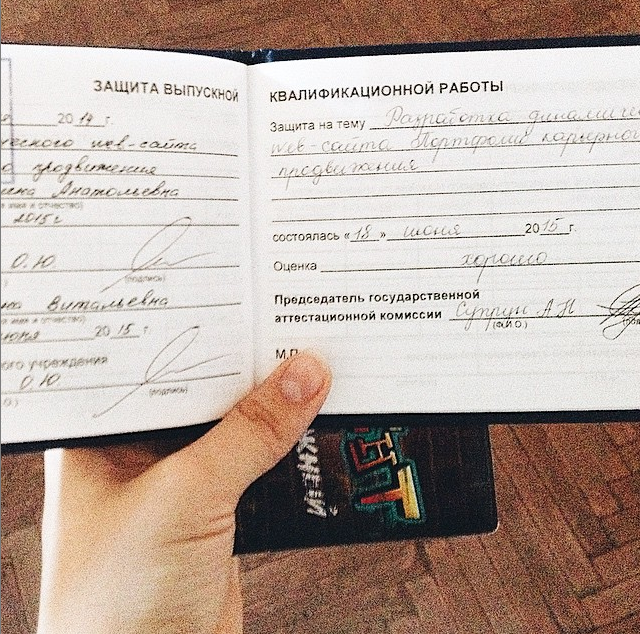 ЗАЩИТА ВЫПУСКНОЙ
2014 г.
web-сайта
продвижения
Анатольевна
2015 г
О.Ю
(подпись)
Витальевна
2015 г.
ого учреждения
О.Ю.
(подпись)
КВАЛИФИКАЦИОННОЙ РАБОТЫ
Защита на тему Разработка динамич
web-сайта Портфолио карьерного
продвижения
состоялась «18» июня 2015 г.
Оценка хорошо
Председатель государственной
аттестационной комиссии Супрун А.Н
(Ф.И.О.)
М.П.